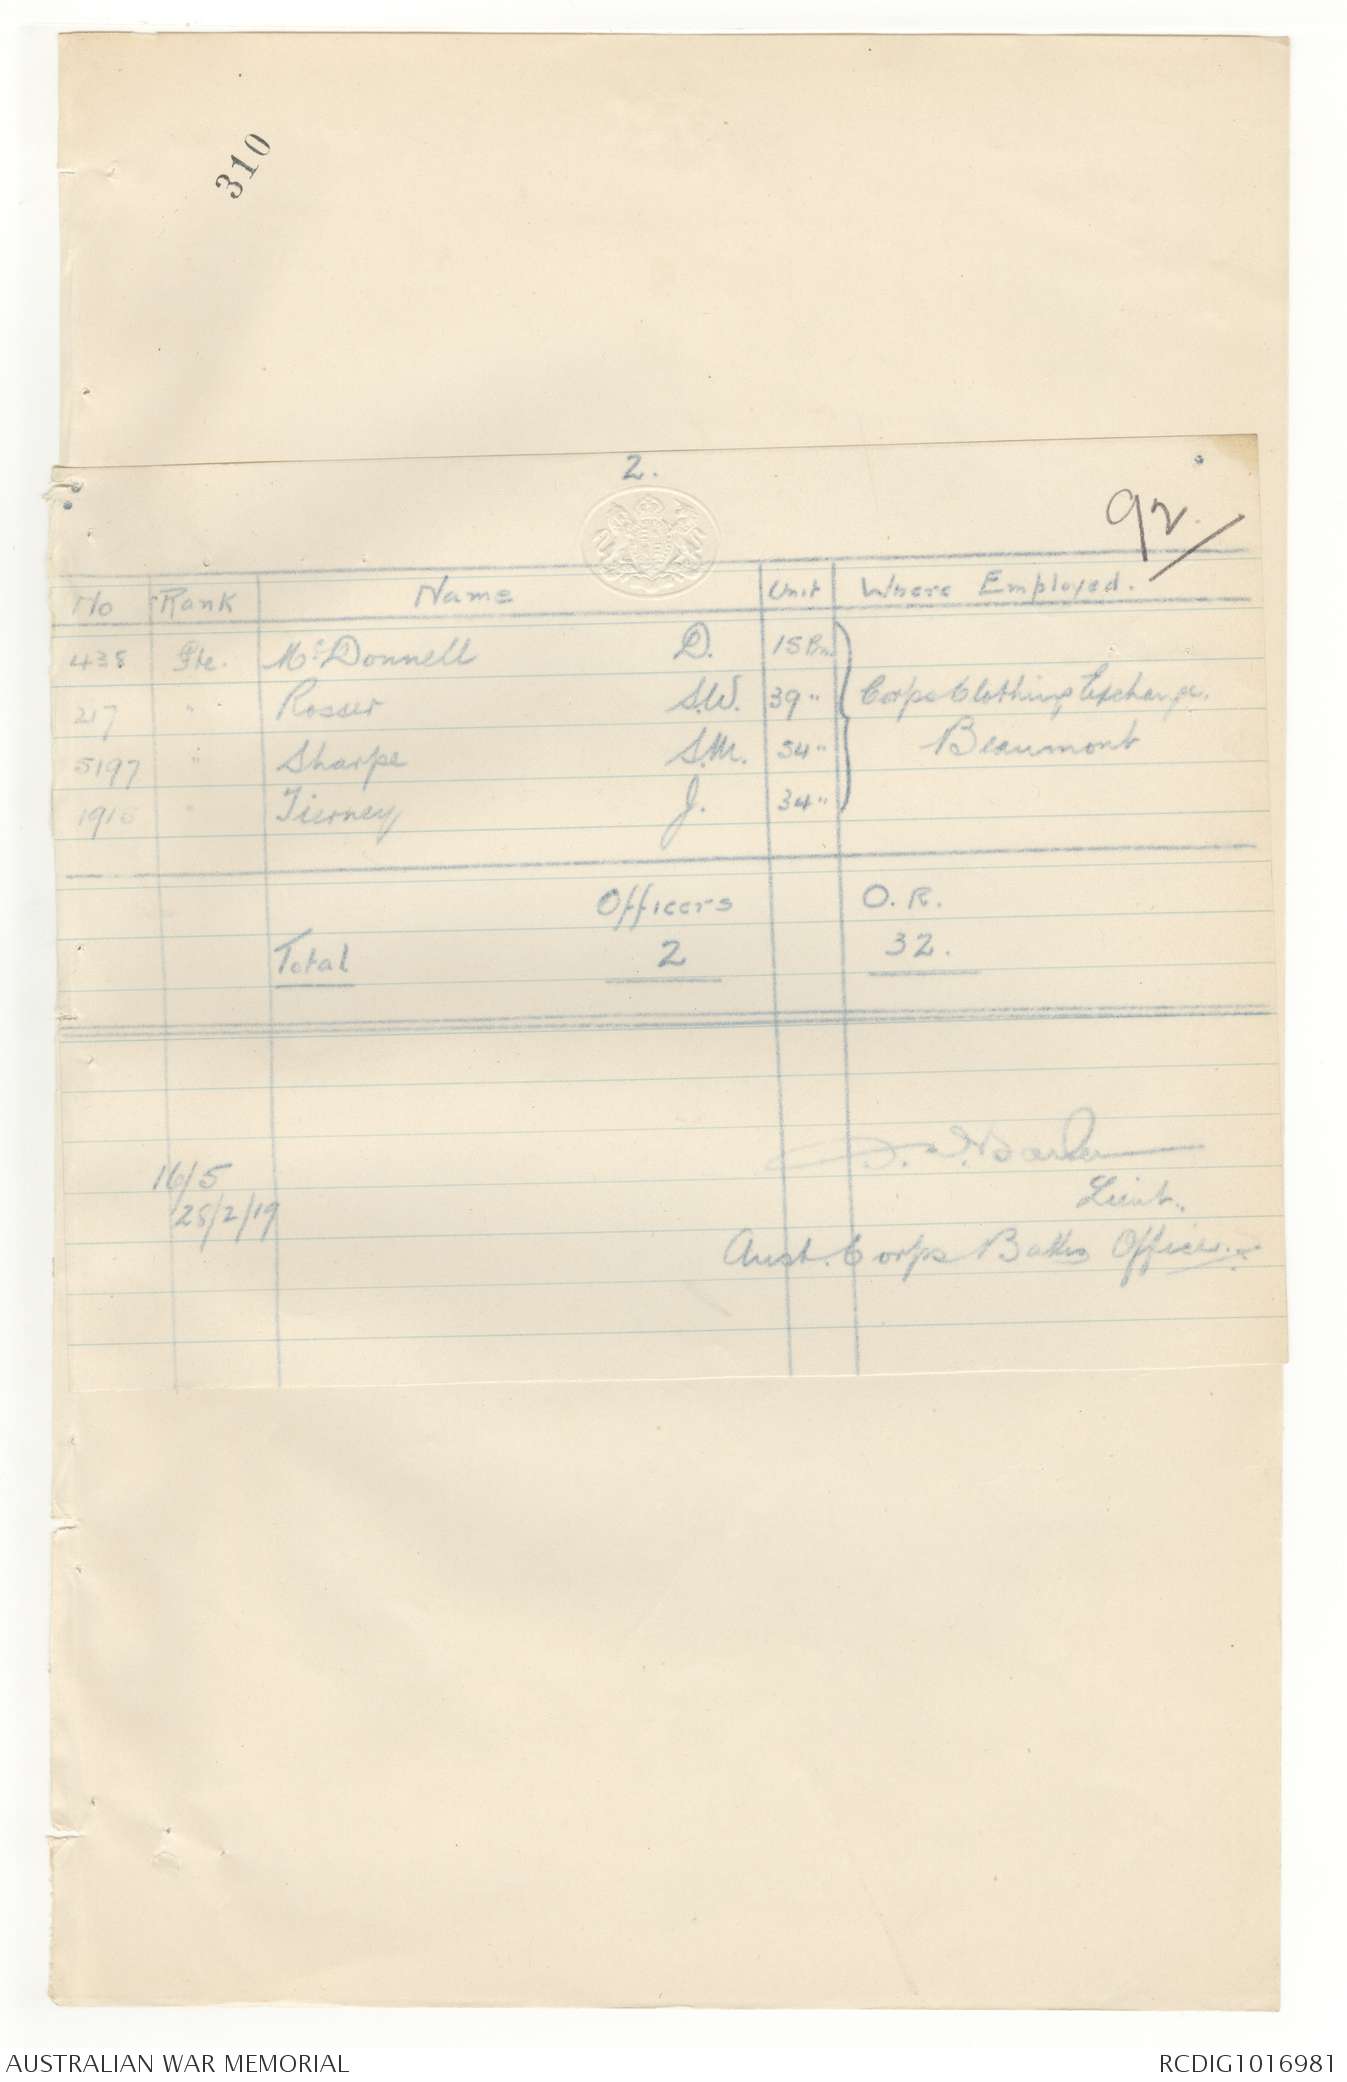 310
2.
92.
No Rank Name Unit Where Employed.
438 Pte. McDonnell D. 15 Bn.
217 " Rosser S.W. 39 " Corps Clothing Exchange.
5197 " Sharpe S.M. 34 " Beaumont
1915 " Tierney J. 34 "
Officers O.R.
Total 2 32.
16/5
28/2/19
Lieut.
Aust. Corps Baths Officer.
AUSTRALIAN WAR MEMORIAL RCDIG1016981